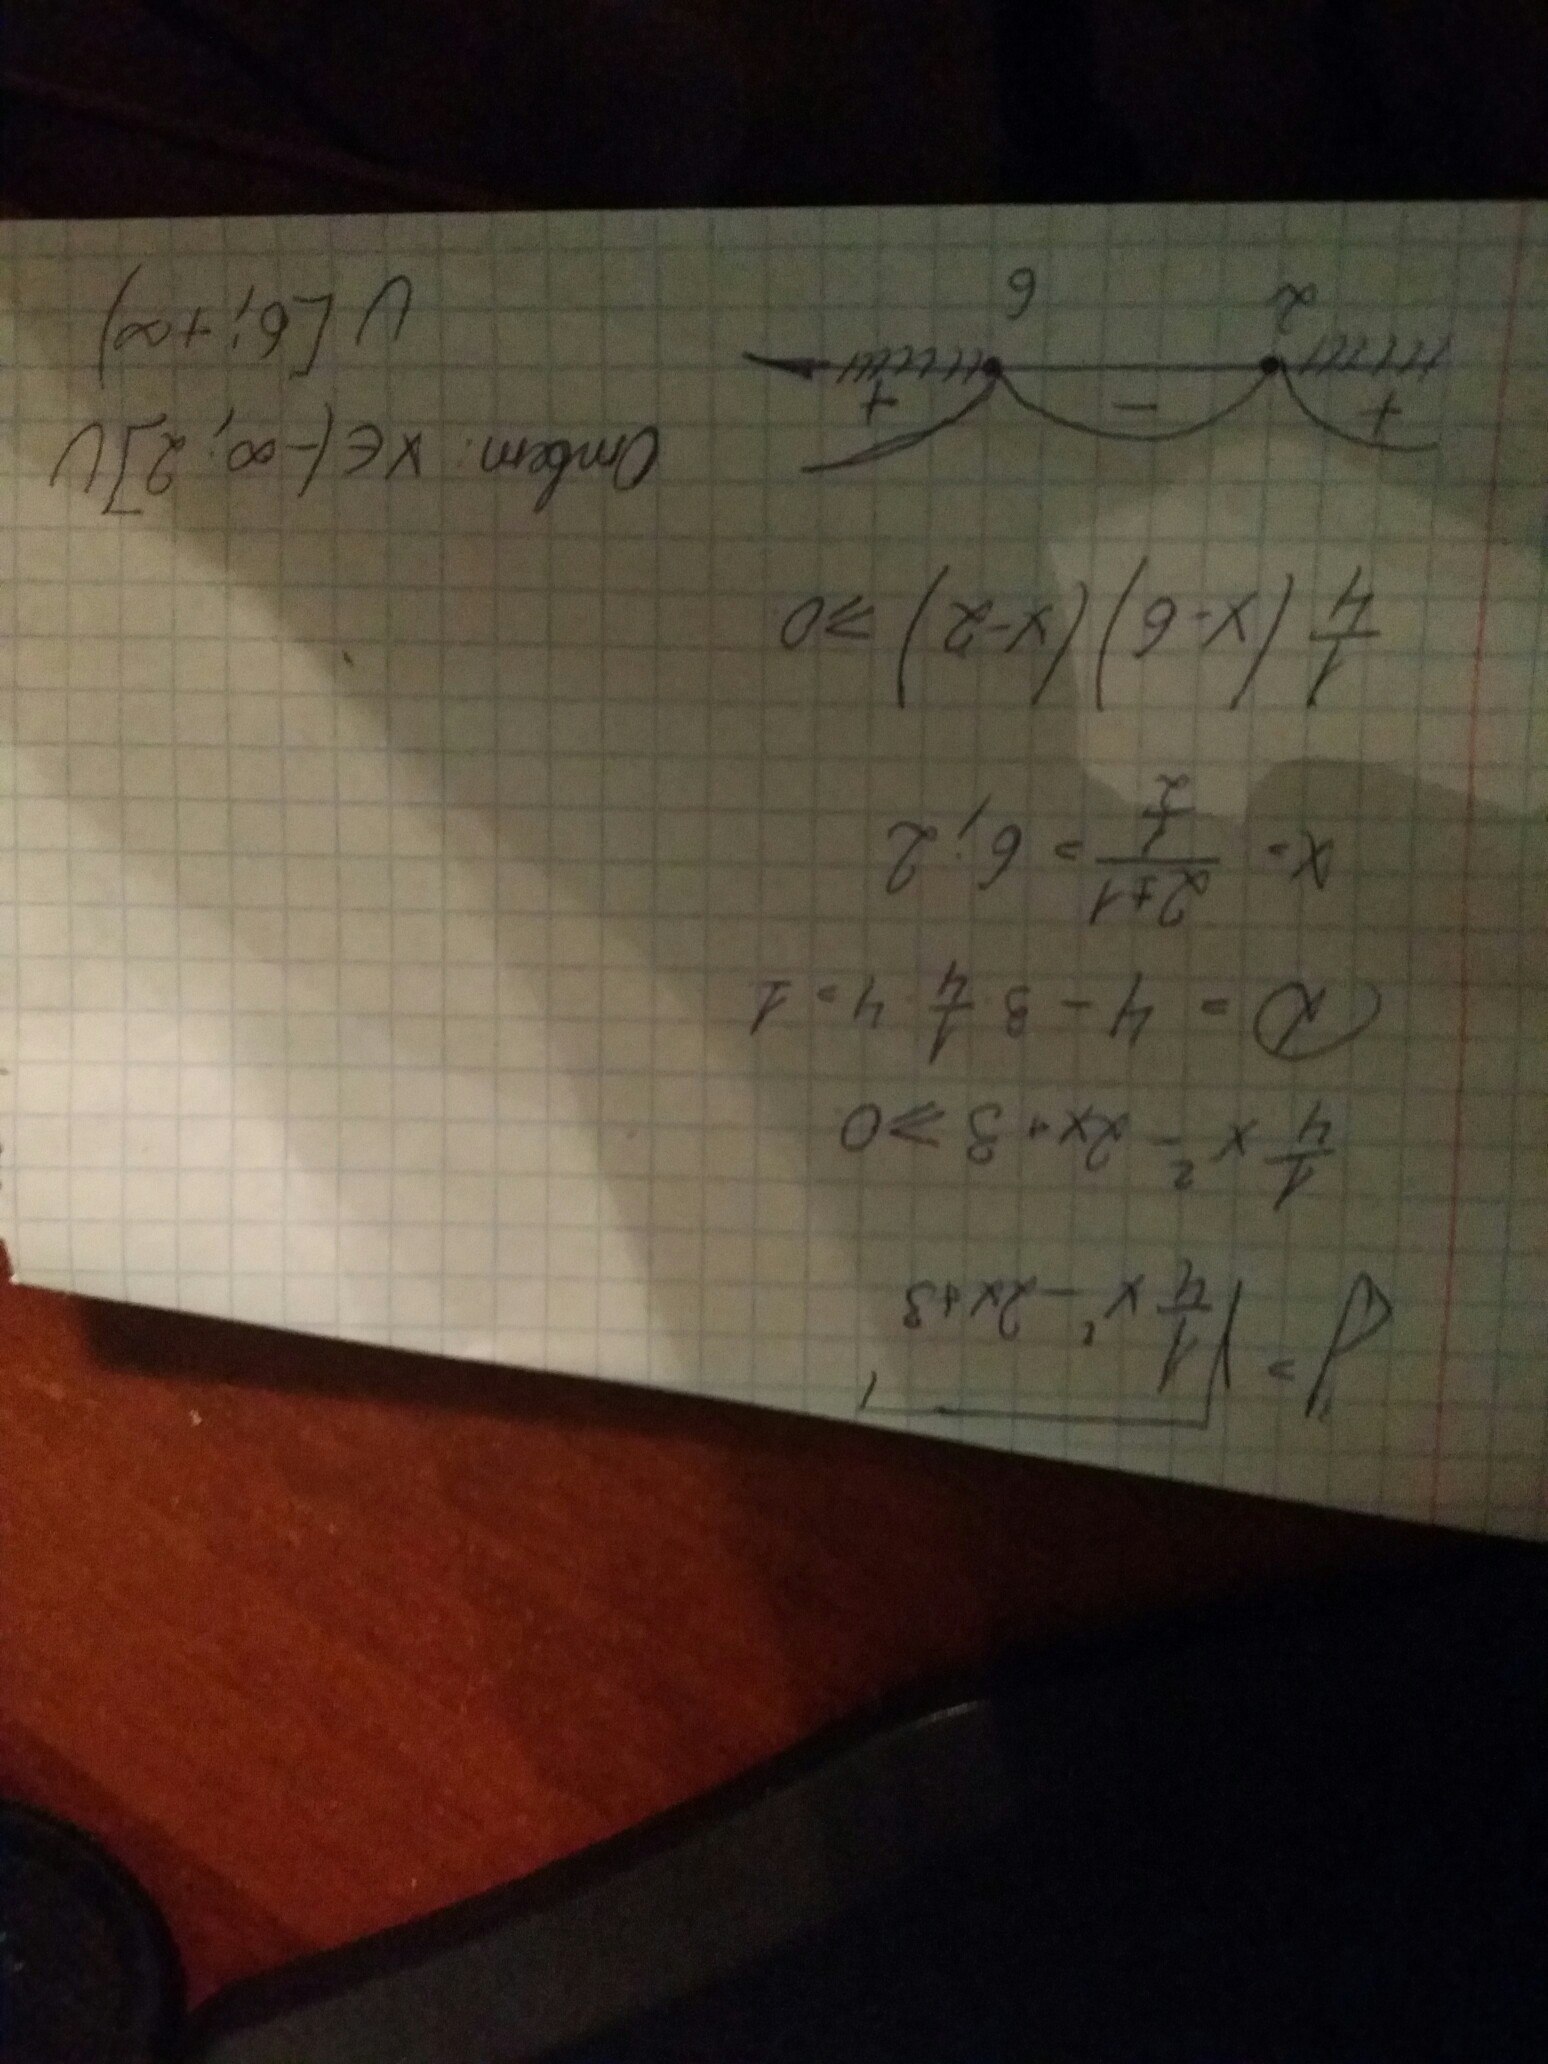 y = √(1/4 x² - 2x + 3)
1/4 x² - 2x + 3 ≥ 0
D = 4 - 3 · 1/4 · 4 = 1
x = (2 ± 1)/(1/2) = 6; 2
1/4 (x - 6)(x - 2) ≥ 0
+ - +
2 6
Ответ: x ∈ (-∞; 2] U
U [6; +∞)